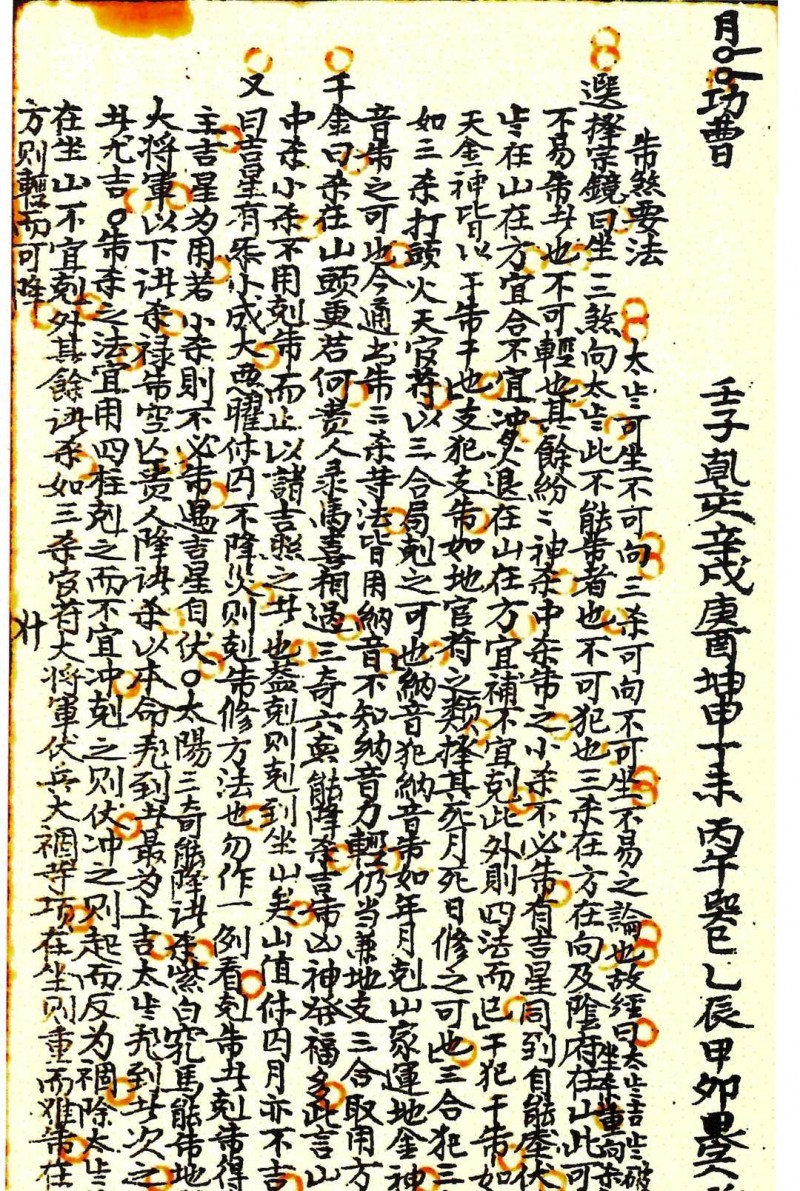 月 功曹
壬子乾亥辛戌庚酉坤申丁未丙午巽巳乙辰甲卯艮寅
制煞要法
太岁可坐不可向三杀可向不可坐不易之論也故經曰太岁吉岁破
坐杀重向杀
選擇宗鏡曰坐三煞向太岁此不能制者也不可犯也三杀在方在向及陰府在山此可
不易制者也不可輕也其餘紛々神杀中杀制之小杀不必制有吉星同到自能壓伏
岁在山在方宜合不宜冲 退在山在方宜補不宜剋此外則四法而已干犯干制如
天金神皆以干制干也支犯支制如地官符之類擇其死月死日修之可也三合犯三
如三杀打頭火天官符以三合局剋之可也納音犯納音制如年月剋山家運地金神
音制之可也今通书制三杀等法皆用納音不知納音力輕仍当兼地支三合取用方
千金曰杀在山頭更若何贵人禄馬喜相遇三奇六 能降杀吉制凶神發福多此言山
中杀小杀不用剋制而止以諸吉照之者也蓋剋則剋到坐山矣山值 月亦不吉
又曰吉星有氣小成大惡曜休囚不降災則剋制修方法也勿作一例看剋制者剋制得
主吉星為用若小杀則不必制遇吉星自伏〇太陽三奇能降諸杀紫白禄馬能制地
大將軍以下諸杀禄制空亡贵人降諸杀以本命 到者最为上吉太岁 到者次之
者尤吉〇制杀之法宜用四柱剋之而不宜冲剋之则伏冲之则起而反为禍除太岁
在坐山不宜剋外其餘諸杀如三杀官符大將軍伏兵大禍等項在坐则重而难制在
方则輕而可降